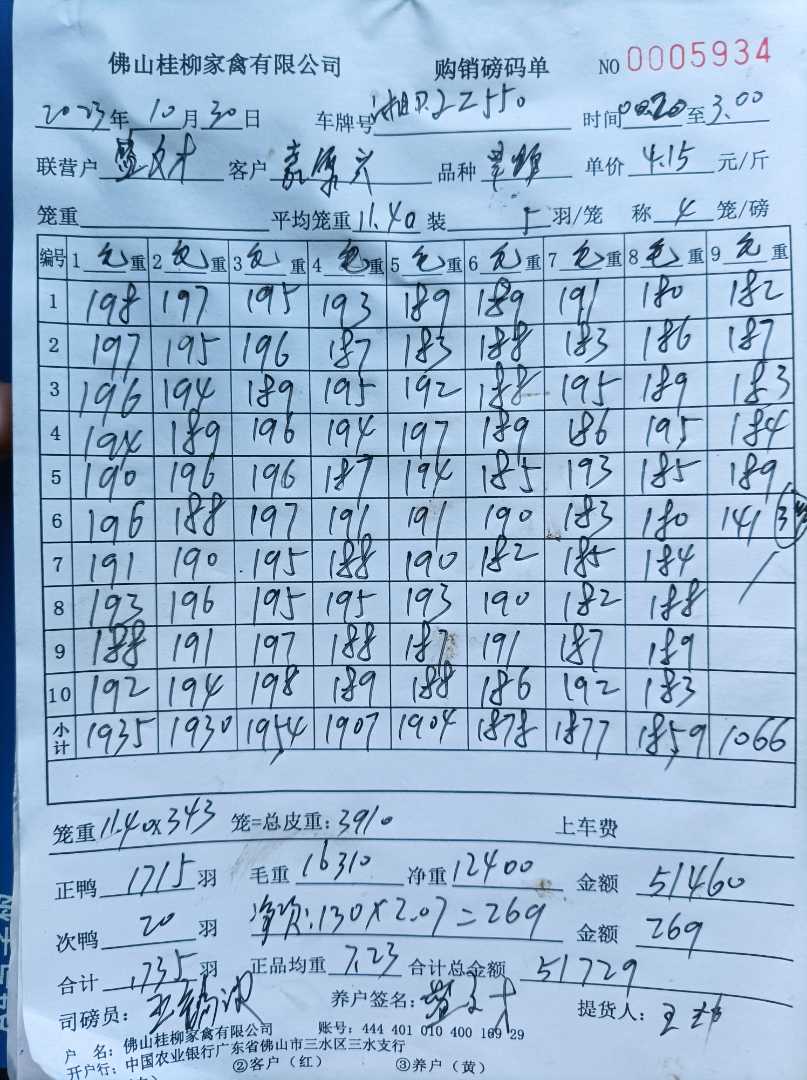 佛山桂柳家禽有限公司 购销磅码单 NO 0005934
2023年10月30日 车牌号湘P.2Z550 时间00.20至3.00
联营户 客户 品种 单价4.15元/斤
笼重 平均笼重11.40装5羽/笼 称4笼/磅
编号 1毛重 2毛重 3毛重 4毛重 5毛重 6毛重 7毛重 8毛重 9毛重
1 198 197 195 193 189 189 191 180 182
2 197 195 196 187 183 188 183 186 187
3 196 194 189 195 192 188 195 189 183
4 194 189 196 194 197 189 186 195 184
5 190 196 196 187 194 185 193 185 189
6 196 188 197 191 191 190 183 180 141
7 191 190 195 188 190 182 185 184
8 193 196 195 195 193 190 182 188
9 188 191 197 188 187 191 187 189
10 192 194 198 189 188 186 192 183
小计 1935 1930 1954 1907 1904 1878 1877 1859 1066
笼重11.40×343笼=总皮重:3910 上车费
正鸭1715羽 毛重16310净重12400 金额51460
次鸭20羽 净次:130×2.07=269 金额269
合计1735羽 正品均重7.23 合计总金额51729
司磅员: 养户签名: 提货人:
户 名:佛山桂柳家禽有限公司 账号:444 401 010 400 169 29
开户行:中国农业银行广东省佛山市三水区三水支行
②客户(红) ③养户(黄)